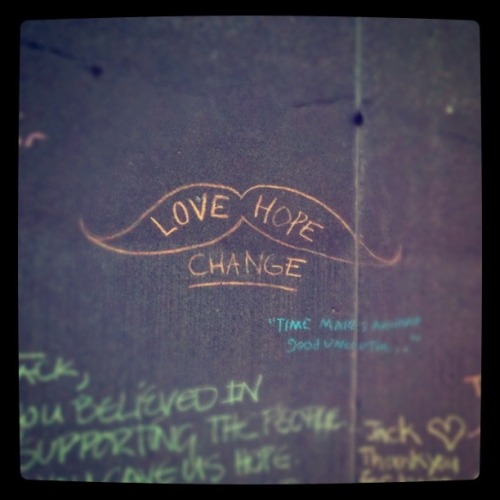 LOVE HOPE
CHANGE
"TIME MAKES ANCIENT
good UNCOUTH..."
ACK,
OU BELIEVED IN
SUPPORTING THE PEOPLE.
GAVE US HOPE.
Jack ♡
Thankyou